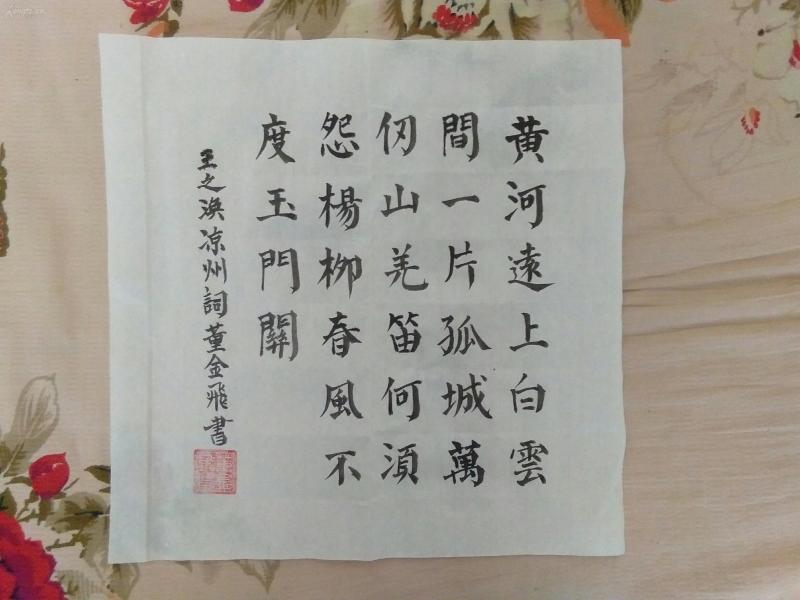 黄河遠上白雲
間一片孤城萬
仞山羌笛何須
怨楊柳春風不
度玉門關
王之涣凉州詞董金飛書